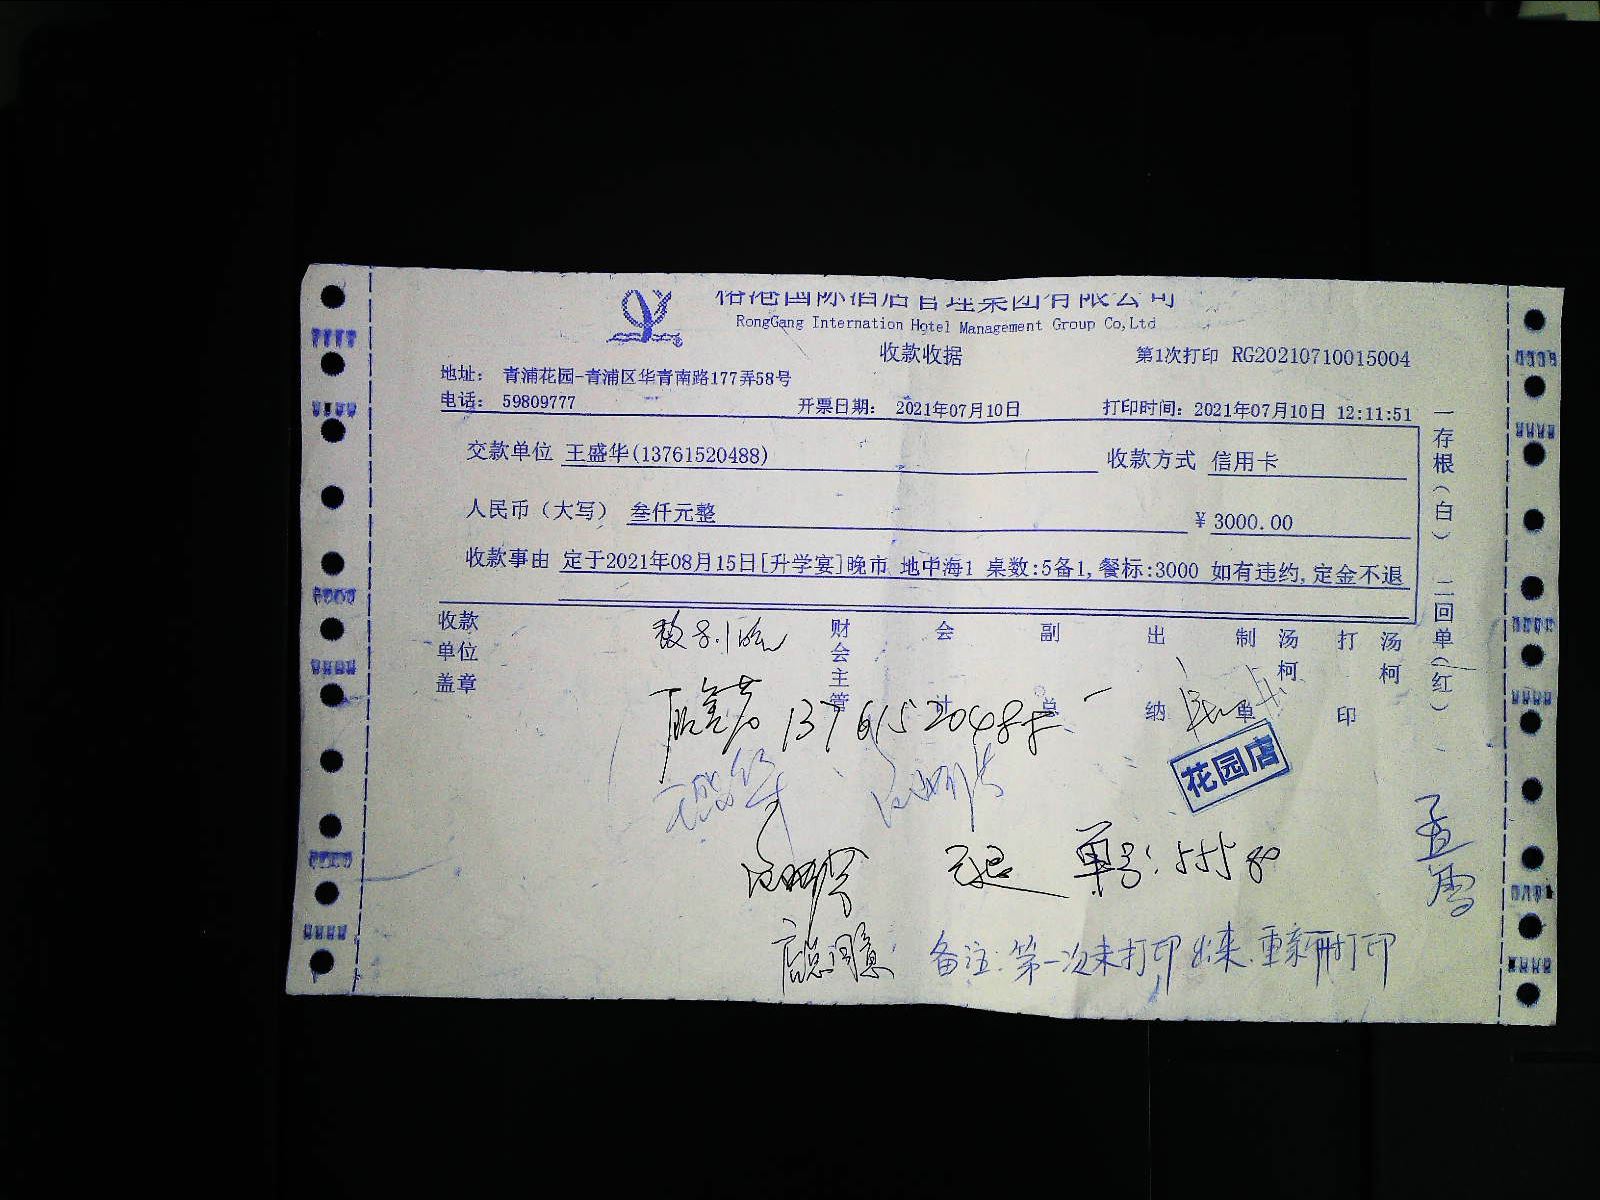 榕港国际酒店管理集团有限公司
RongGang Internation Hotel Management Group Co,Ltd
收款收据
第1次打印 RG20210710015004
地址： 青浦花园-青浦区华青南路177弄58号
电话： 59809777
开票日期： 2021年07月10日
打印时间：2021年07月10日 12:11:51
交款单位 王盛华(13761520488)
收款方式 信用卡
人民币（大写） 叁仟元整
¥ 3000.00
收款事由 定于2021年08月15日[升学宴]晚市 地中海1 桌数:5备1,餐标:3000 如有违约,定金不退
一存根（白） 二回单（红）
收款单位盖章
财会主管
会计
副总
出纳
制单
汤柯
打印
汤柯
13761520488
花园店
单号：55580
孟雪
店总同意
备注：第一次未打印出来，重新打印